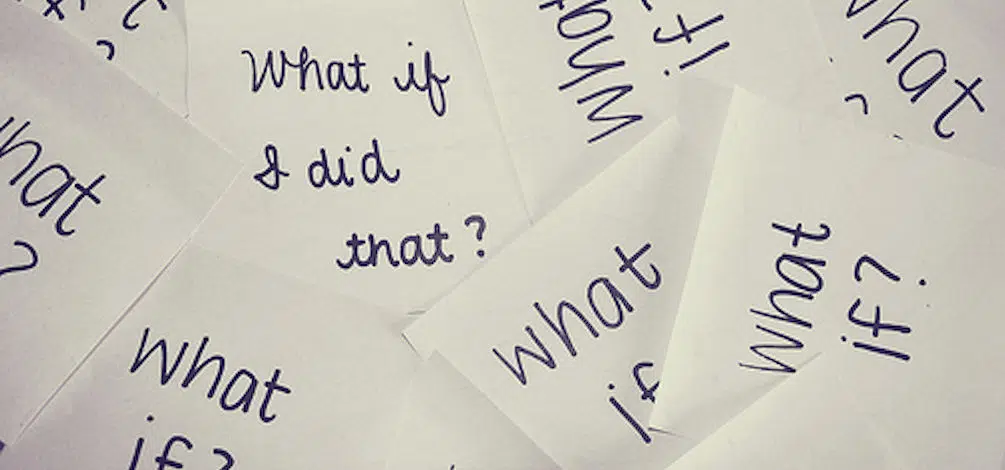 What if
I did
that?
What
if
what
hat
?
what
if?
what
if
what
if?